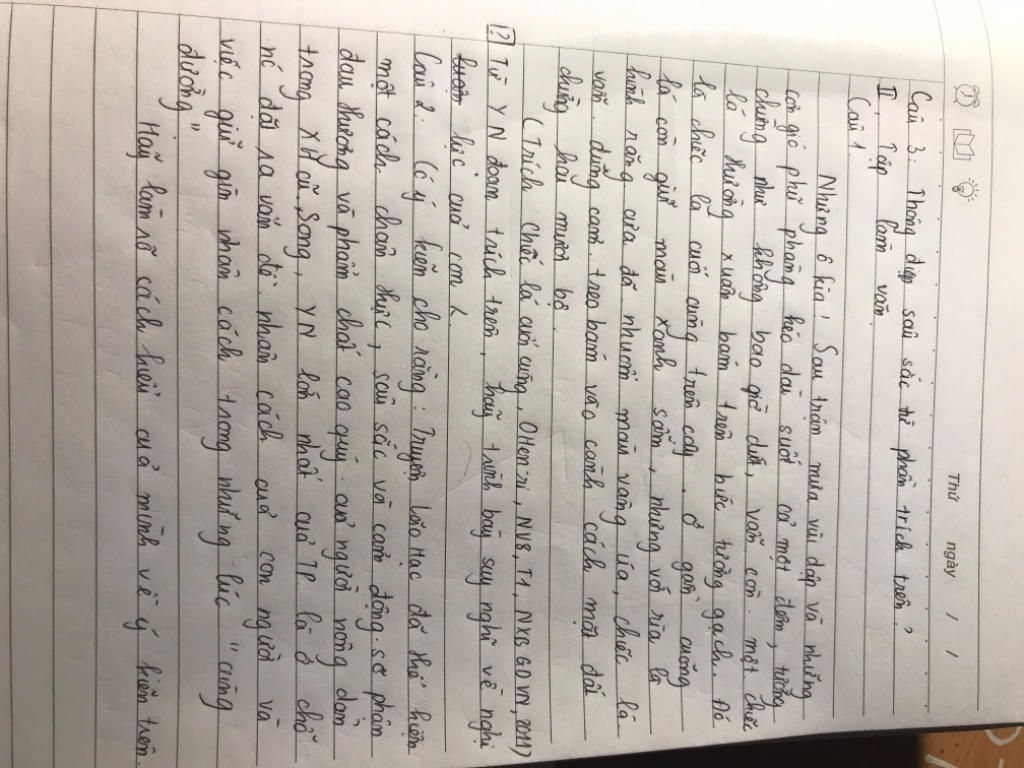 Thứ ngày / /
Câu 3: Thông điệp sâu sắc từ phần trích trên?
II, Tập làm văn.
Câu 1.
Nhưng ô kìa! Sau trận mưa vùi dập và những
cơn gió phũ phàng kéo dài suốt cả một đêm, tưởng
chừng như không bao giờ dứt, vẫn còn một chiếc
lá thường xuân bám trên bức tường gạch. Đó
là chiếc lá cuối cùng trên cây. ở gần cuống
lá còn giữ màu xanh sẫm, nhưng với rìa lá
hình răng cưa đã nhuốm màu vàng úa, chiếc lá
vẫn dũng cảm treo bám vào cành cách mặt đất
chừng hai mươi bộ.
(Trích Chiếc lá cuối cùng, OHen-ri, NV8, T1, NXBGDVN, 2011)
Từ YN đoạn trích trên, hãy trình bày suy nghĩ về nghị
lực của con
Câu 2: Có ý kiến cho rằng: Truyện Lão Hạc đã thể hiện
một cách chân thực, sâu sắc và cảm động số phận
đau thương và phẩm chất cao quý của người nông dân
trong XH cũ. Song, YN lớn nhất của TP là ở chỗ
nó đặt ra vấn đề nhân cách của con người và
việc giữ gìn nhân cách trong những lúc "cùng
đường"
Hãy làm rõ cách hiểu của mình về ý kiến trên.